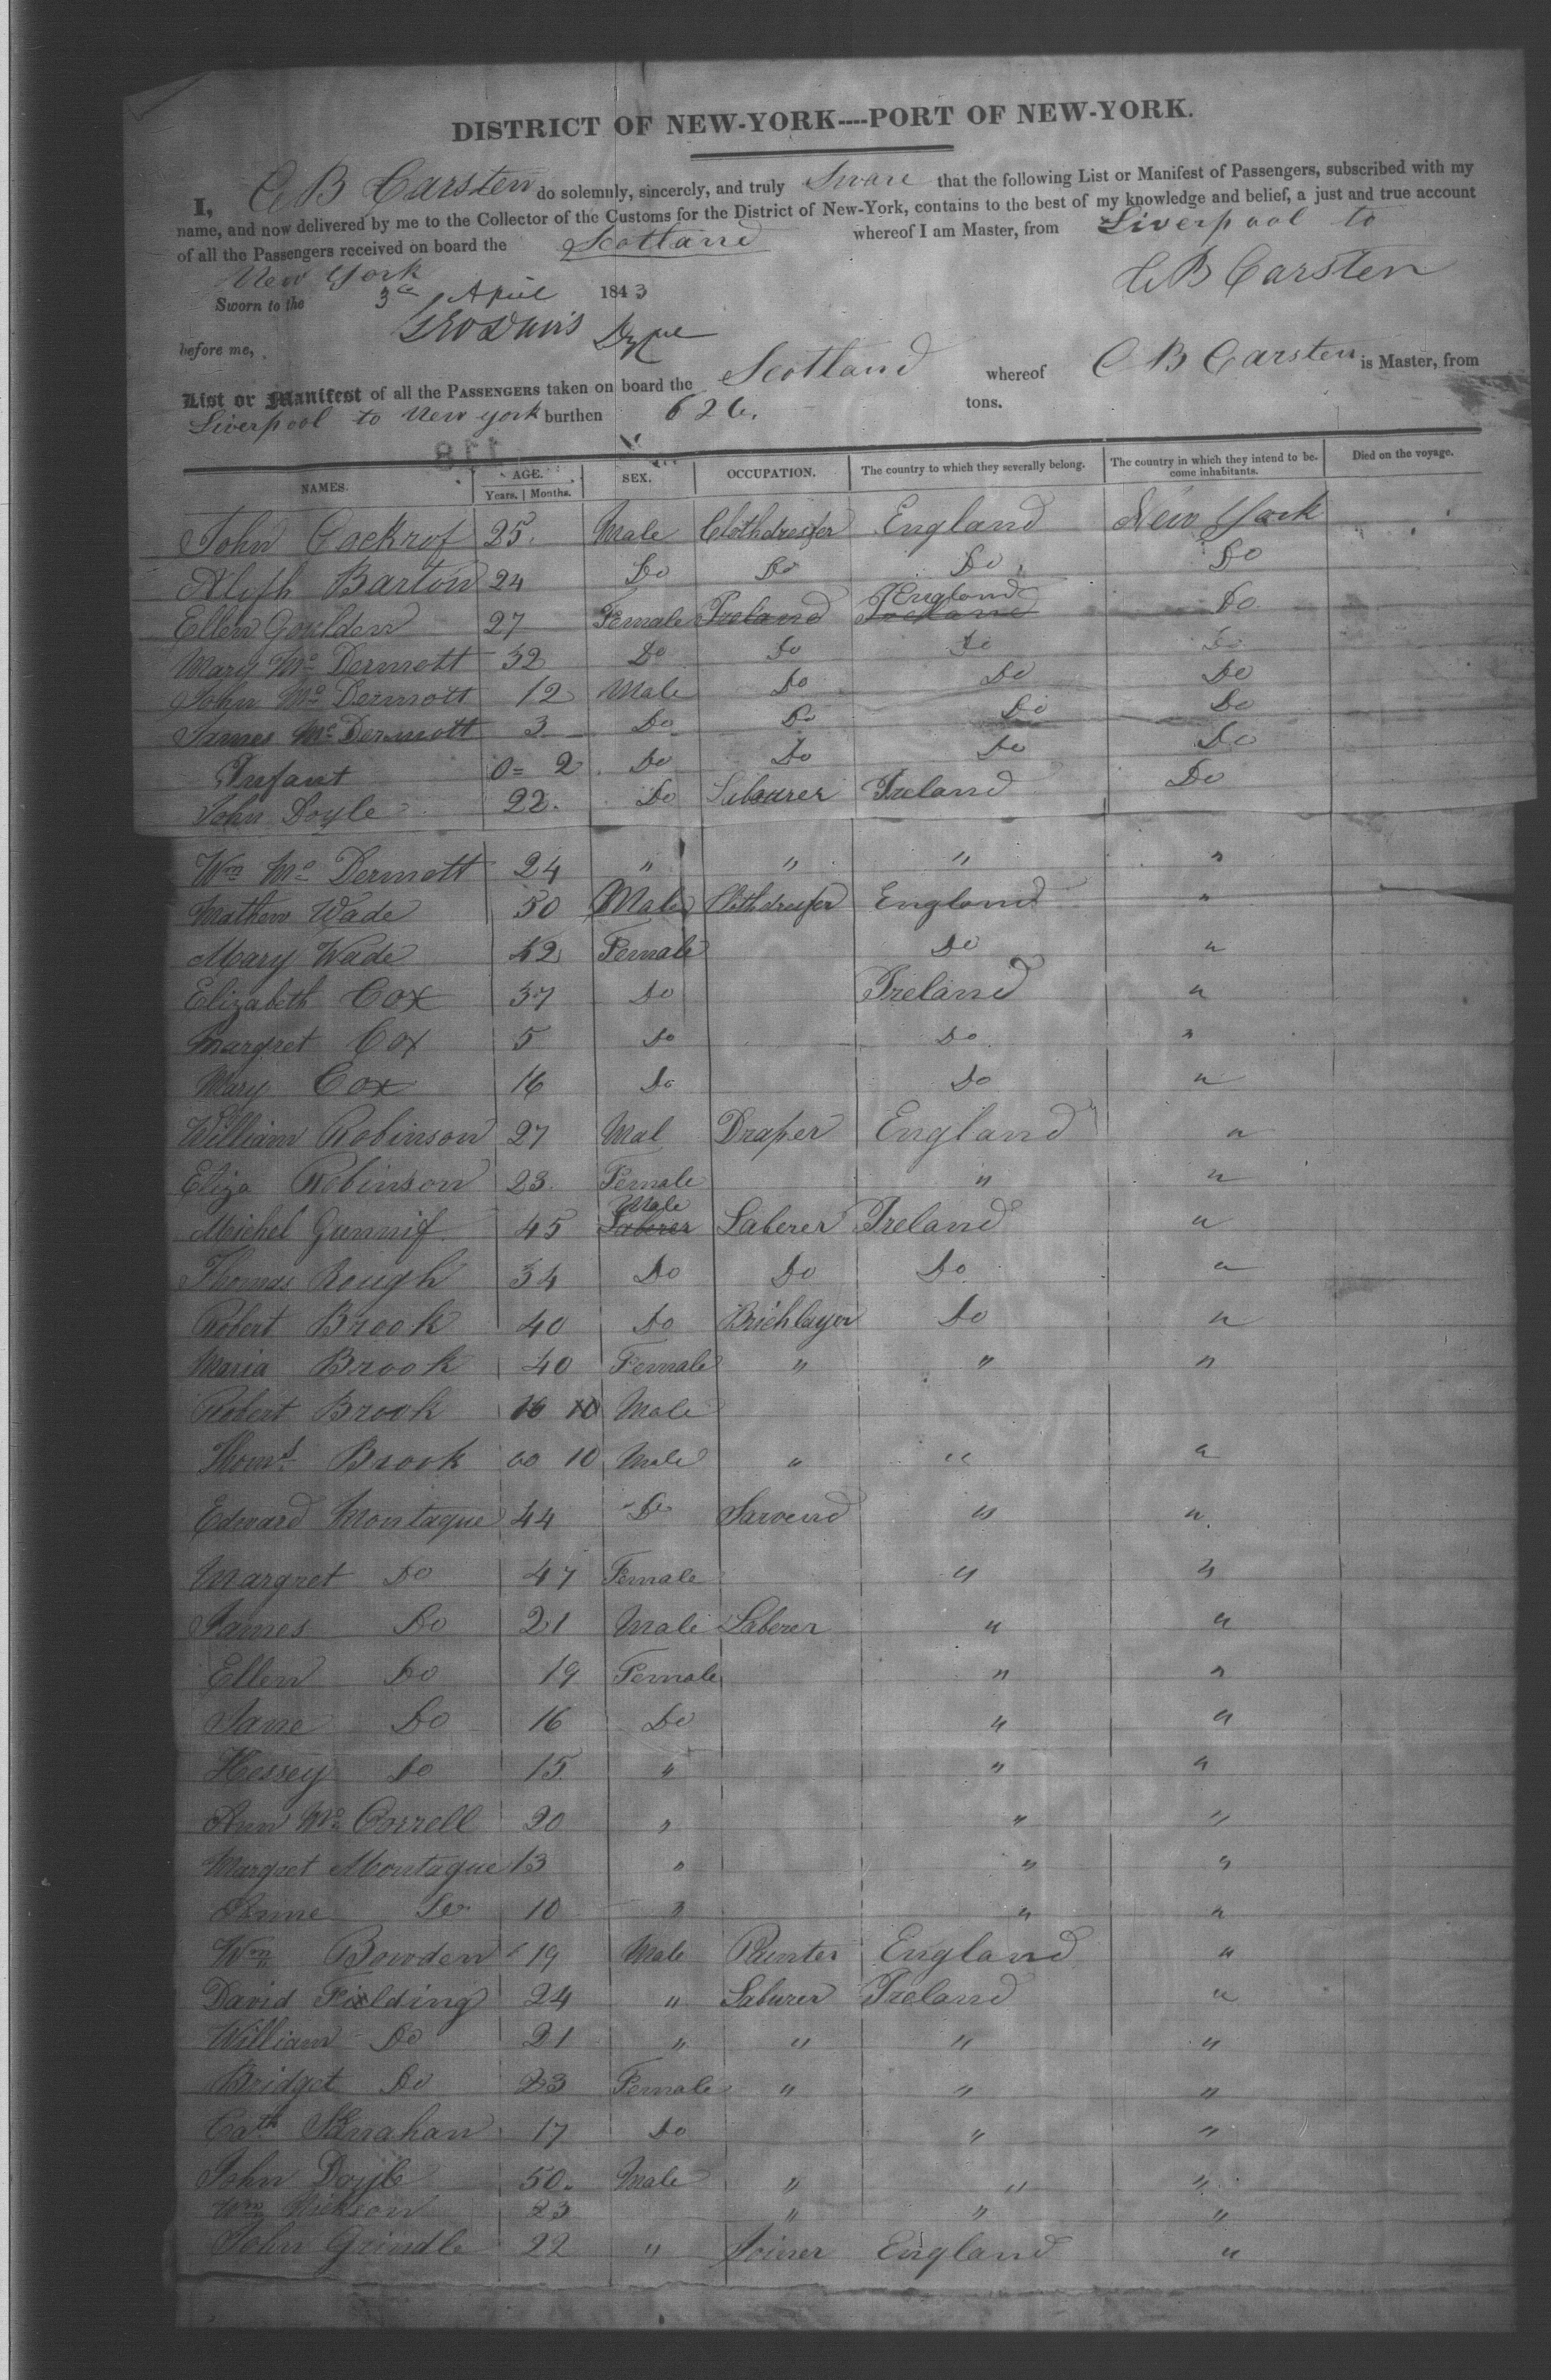 DISTRICT OF NEW-YORK----PORT OF NEW-YORK.
I, C B Carsten do solemnly, sincerely, and truly Sware that the following List or Manifest of Passengers, subscribed with my
name, and now delivered by me to the Collector of the Customs for the District of New-York, contains to the best of my knowledge and belief, a just and true account
of all the Passengers received on board the Scotland whereof I am Master, from Liverpool to
New York
C B Carsten
Sworn to the 3d April 1843
before me,
List or Manifest of all the PASSENGERS taken on board the Scotland whereof C B Carsten is Master, from
Liverpool to New york burthen 626. tons.
NAMES. AGE. Years. | Months. SEX. OCCUPATION. The country to which they severally belong. The country in which they intend to become inhabitants. Died on the voyage.
John Cockrof 25. Male Clothdresser England New York
Barton 24 Do Do Do Do
Ellen Goulden 27 Female Ireland England Do
Mary Mc Dermott 32 Do Do Do Do
John Mc Dermott 12 Male Do Do Do
James Mc Dermott 3 Do Do Do Do
Infant 0 = 2 Do Do Do Do
John Doyle 22. Do Labourer Ireland Do
Wm Mc Dermott 24 " " " "
Mathew Wade 50 Male Clothdresser England "
Mary Wade 42 Female Do "
Elizabeth Cox 37 Do Ireland "
Margret Cox 5 Do Do "
Mary Cox 16 Do Do "
William Robinson 27 Mal Draper England "
Eliza Robinson 23. Female " "
Michel Gunnif 45 Laberer Male Laberer Ireland "
Thomas Rough 34 Do Do Do "
Robert Brook 40 Do Brichlayer Do "
Maria Brook 40 Female " " "
Robert Brook Male
Thoms Brook 00 10 Male " " "
Edward Montague 44 Do Sarvend " "
Margret Do 47 Female " "
James Do 21 Male Laberer " "
Ellen Do 19 Female " "
Jane Do 16 Do " "
Hessey Do 15 " " "
Ann Mc Correll 20 " " "
Margret Montague 13 " " "
Do 10 " " "
Wm Bowden 19 Male Painter England "
David Fielding 24 " Laburer Ireland "
William Do 21 " " " "
Bridget Do 23 Female " " "
Cath 17 Do " "
John Doyle 50. Male " " "
Wm Nickson 23 " " "
John Grindle 22 " Joiner England "